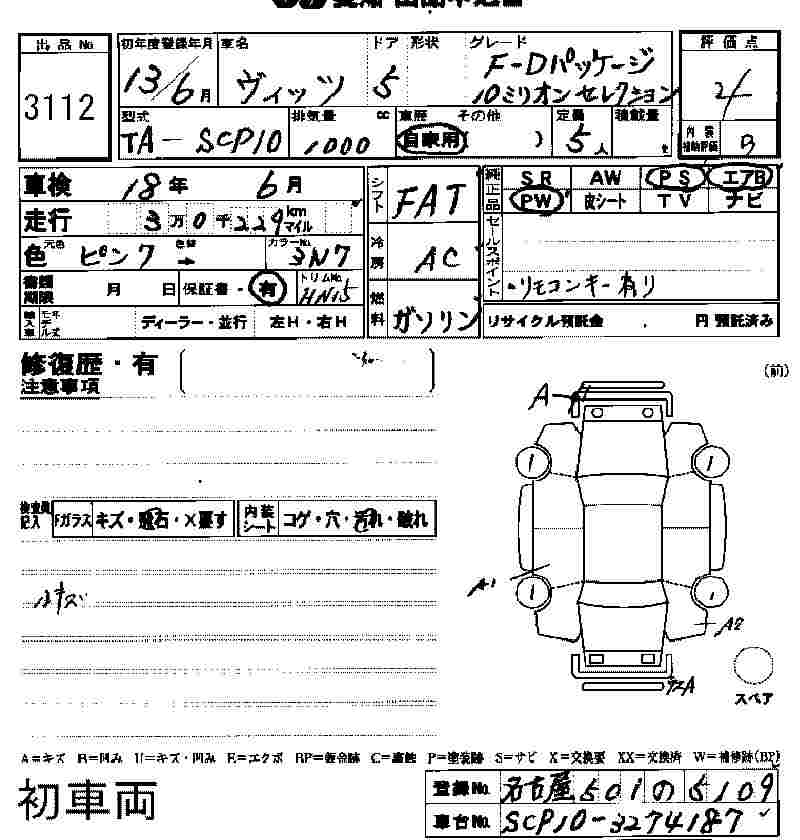 出品No
3112
初年度登録年月 車名 ドア 形状 グレード
13/6月 ヴィッツ 5 F-Dパッケージ
10ミリオンセレクション
型式 排気量 cc 車歴 その他 定員 積載量
TA-SCP10 1000 自家用 ( ) 5人
評価点
4
内装補助評価 B
車検 18年 6月
走行 3万0千229km マイル
色 元色 ピンク 色替 → カラーNo. 3N7
書類期限 月 日 保証書・有 トリムNo. HN15
輸入車 モデル年式 ディーラー・並行 左H・右H
シフト FAT
冷房 AC
燃料 ガソリン
純正品 SR AW PS エアB
PW 皮シート TV ナビ
セールスポイント
・リモコンキー有り
リサイクル預託金 . 円 預託済み
修復歴・有 ( )
注意事項
(前)
A
検査員記入 Fガラス キズ・飛石・×要す 内装シート コゲ・穴・汚れ・破れ
A1
A2
A
スペア
A=キズ B=凹み U=キズ・凹み E=エクボ BP=鈑金跡 C=腐蝕 P=塗装跡 S=サビ X=交換要 XX=交換済 W=補修跡(BP)
初車両
登録No. 名古屋501の5109
車台No. SCP10-3274187